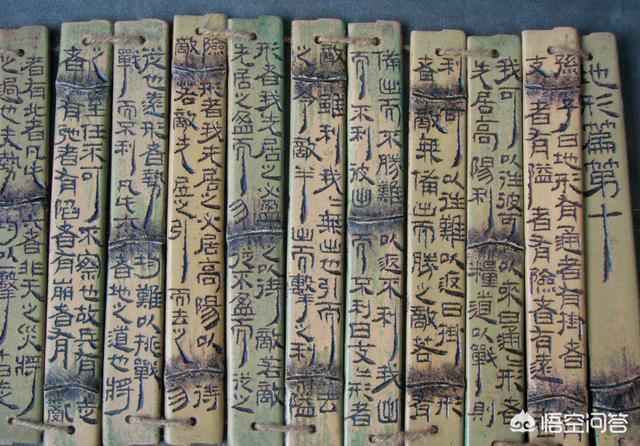 地形篇第十
孫子曰地形有通者有掛者
支者有隘者有險者有遠
我可以往彼可以來曰通形者
先居高陽利糧道以戰則
利可以往難以返曰掛形
者敵無備出而勝之敵若有
備出而不勝難以返不利我出
而不利彼出而不利曰支形者
敵雖利我我無出也引而去
之令敵半出而擊之利隘
形者我先居之必盈之以待敵若敵
先居之盈而勿從不盈而從之
險形者我先居之必居高陽以待
敵若敵先居之引而去之勿
從也遠形者勢均難以挑戰
戰而不利凡此六者地之道也將
之至任不可不察也故兵有走
者有弛者有陷者有崩者有亂
者有北者凡此六者非天之災將
之過也夫勢均以一擊十曰走
悟空问答